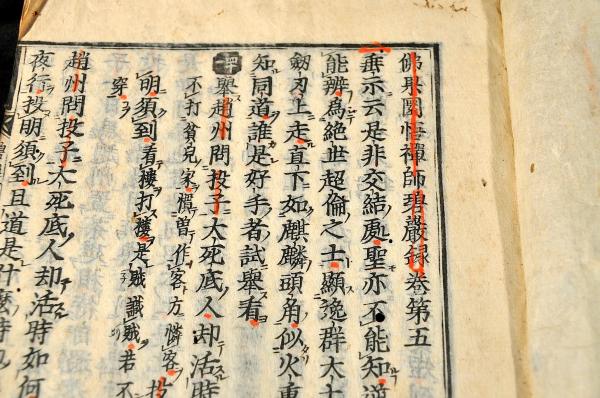 佛果圜悟禪師碧巖録卷第五
垂示云是非交結處聖亦不能知逆
能辨爲絶世超倫之士顯逸群大士
劒刃上走直下如麒麟頭角似火
知同道誰是好手者試擧看
擧趙州問投子大死底人却活時
不打貧兒家慣曾作客方憐客投
明須到看樓打樓是賊識賊若不
穿
趙州問投子大死底人却活時如何
夜行投明須到且道是什麼時